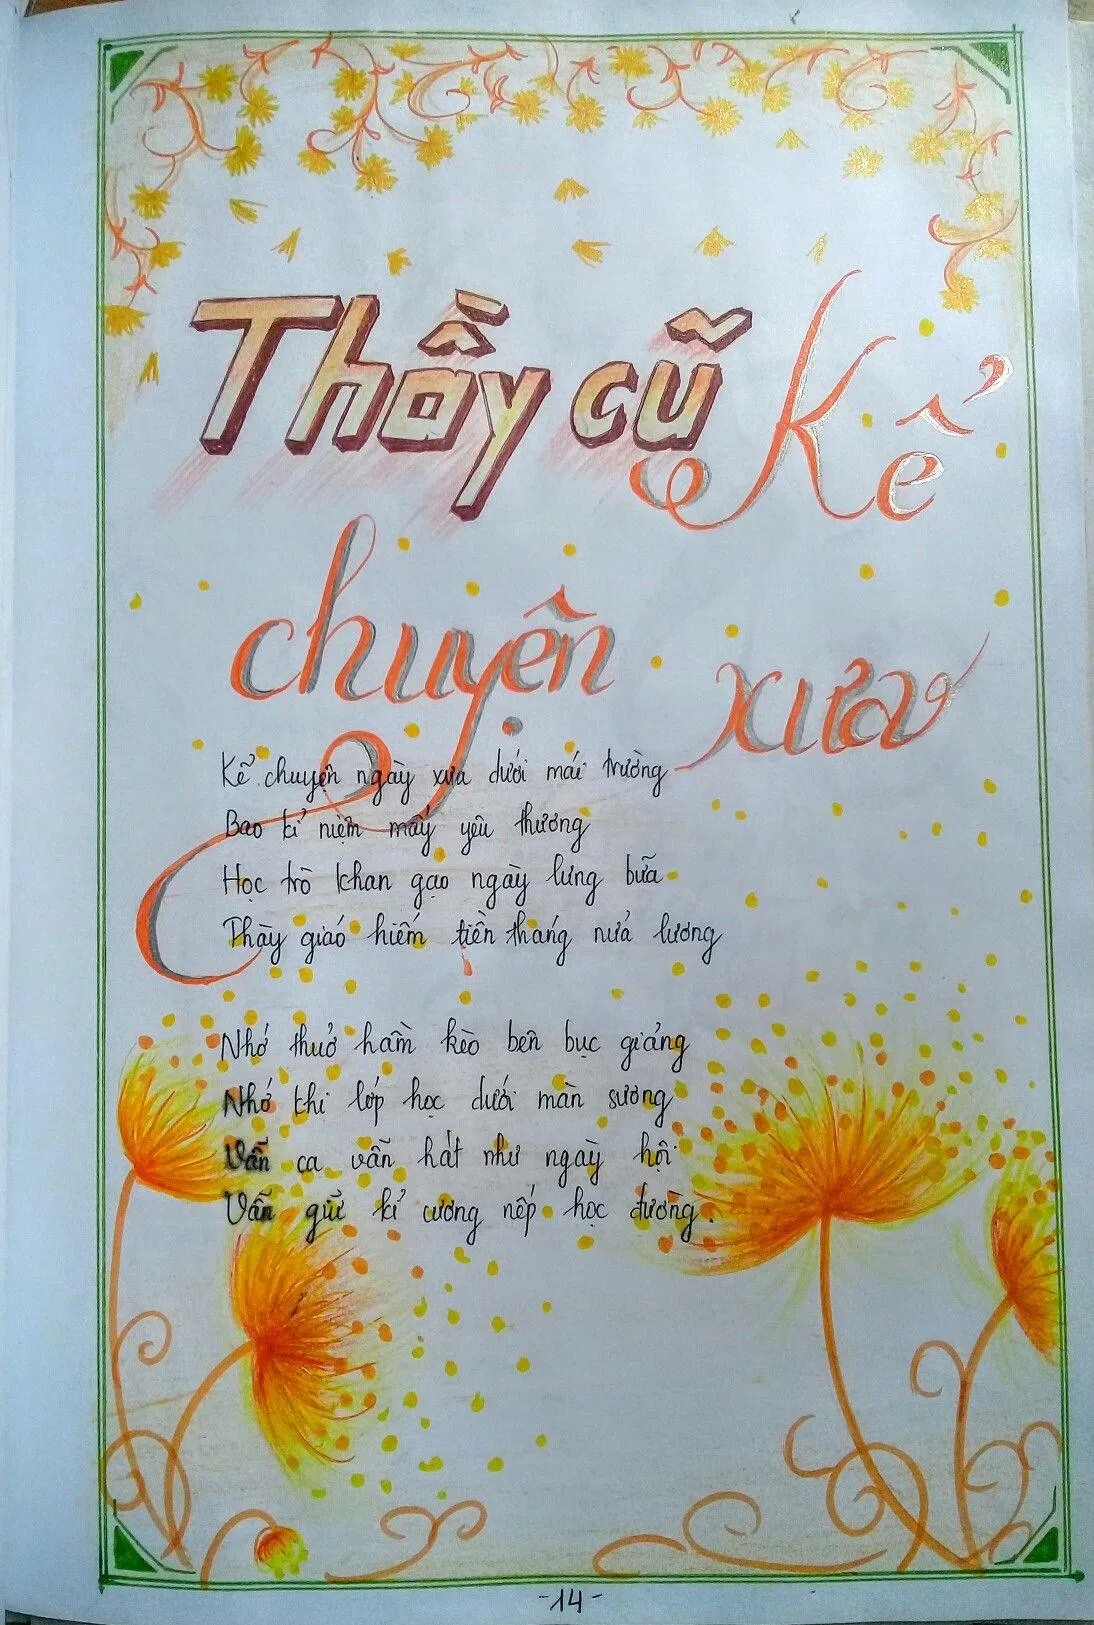 Thầy cũ Kể
chuyện xưa
Kể chuyện ngày xưa dưới mái trường
Bao kỉ niệm mấy yêu thương
Học trò khan gạo ngày lưng bữa
Thày giáo hiếm tiền tháng nửa lương
Nhớ thuở hầm kèo bên bục giảng
Nhớ thi lớp học dưới màn sương
Vẫn ca vẫn hát như ngày hội
Vẫn giữ kỉ cương nếp học đường.
-14-